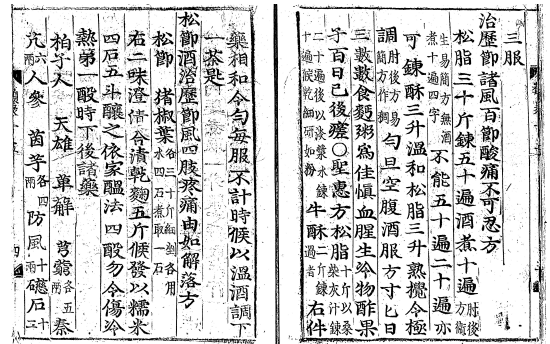 三服
治歷節諸風百節酸痛不可忍方
松脂三十斤鍊五十遍酒煮十遍肘後方衛
生易簡方無酒煮十遍四字不能五十遍二十遍亦
可鍊酥三升溫和松脂三升熟攪令極
調肘後方易簡方作稠勻旦空腹酒服方寸匕日
三數數食麵粥為佳慎血腥生冷物酢果
子百日已後瘥〇聖惠方松脂十斤以桑柴灰汁鍊
二十遍後以淡漿水鍊十遍候乾細研如粉牛酥二斤鍊過者右件
藥相和令勻每服不計時候以溫酒調下
一茶匙
松節酒治歷節風四肢疼痛由如解落方
松節 猪椒葉各三十斤細剉各用水四石煮取一石
右二味澄清合漬乾麴五斤候發以糯米
四石五斗釀之依家醞法四酘勿令傷冷
熱第一酘時下後諸藥
柏子人 天雄 萆薢 芎藭各五兩秦
艽六兩人參 茵芋各四兩防風十兩礠石十二